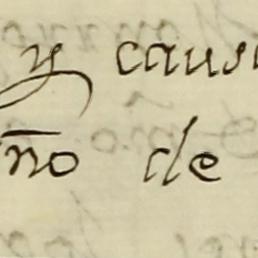 y caus
ño de